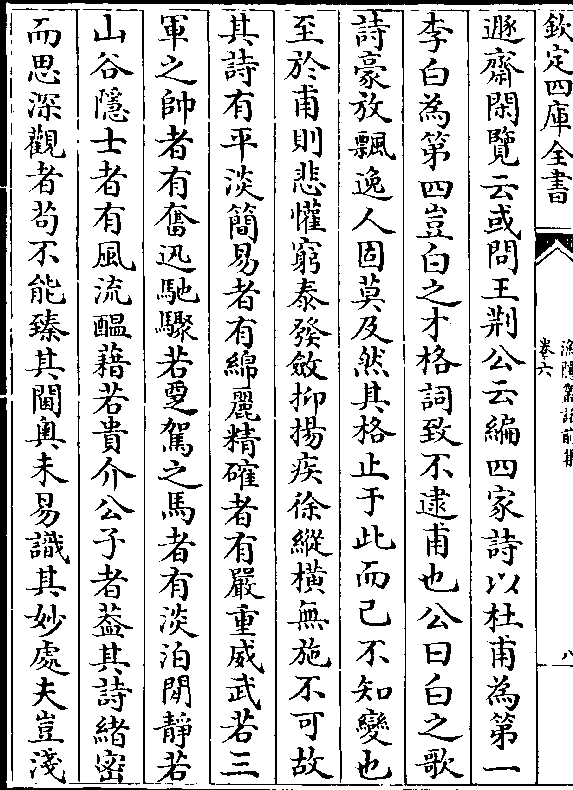 欽定四庫全書
漁隱叢話前集
卷六
八
遯齋閑覽云或問王荆公云編四家詩以杜甫為第一
李白為第四豈白之才格詞致不逮甫也公曰白之歌
詩豪放飄逸人固莫及然其格止于此而已不知變也
至於甫則悲懽窮泰發斂抑揚疾徐縱横無施不可故
其詩有平淡簡易者有綿麗精確者有嚴重威武若三
軍之帥者有奮迅馳驟若覂駕之馬者有淡泊閒靜若
山谷隱士者有風流醖藉若貴介公子者葢其詩緒密
而思深觀者茍不能臻其閫奥未易識其妙處夫豈淺